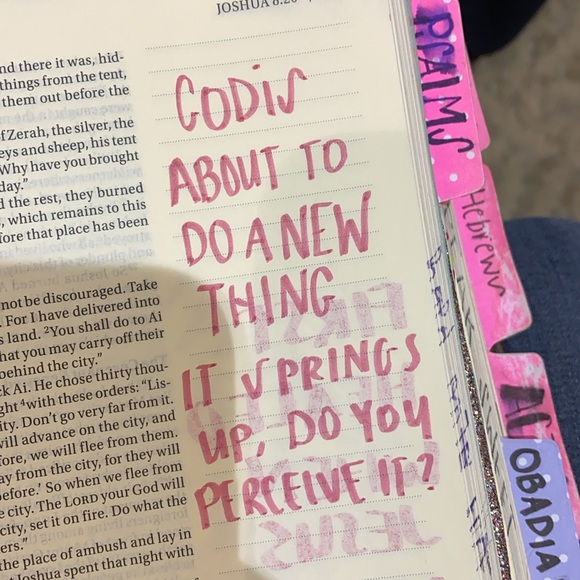 JOSHUA 8:20
nd there it was, hid-
things from the tent,
them out before the
f Zerah, the silver, the
eys and sheep, his tent
Why have you brought
day."
d the rest, they burned
, which remains to this
fore that place has been
not be discouraged. Take
. For I have delivered into
s land. 2You shall do to Ai
hat you may carry off their
behind the city."
ck Ai. He chose thirty thou-
ght 4with these orders: "Lis-
ity. Don't go very far from it.
will advance on the city, and
fore, we will flee from them.
ay from the city, for they will
before.' So when we flee from
e city. The LORD your God will
city, set it on fire. Do what the
ers."
the place of ambush and lay in
t Joshua spent that night with
GOD IS
ABOUT TO
DO A NEW
THING
IT SPRINGS
UP, DO YOU
PERCEIVE IT?
PSALMS
Hebrews
OBADIA